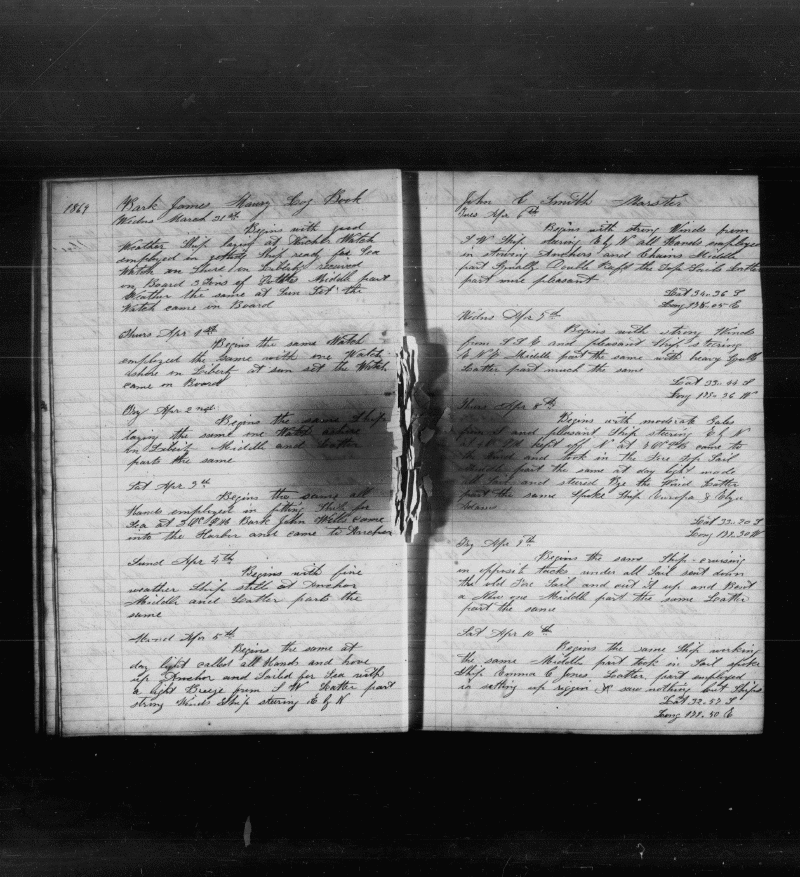 1869
Bark James Maury Log Book
Wedns March 31st
Begins with good
weather Ship laying at Anchor Watch
employed in getting Ship ready for Sea
Watch on Shore on Liberty received
on Board 3 Tons of Middle part
Weather the same at Sun Set the
Watch came on Board
Thurs Apr 1st
Begins the same Watch
employed the same with one Watch
Ashore on Liberty at sun set the Watch
came on Board
Fry Apr 2nd
Begins the same Ship
laying the same one Watch ashore
on Liberty Middle and Latter
parts the same
Sat Apr 3rd
Begins the same all
Hands employed in fitting Ship for
Sea at 3 P.M. Bark John Wells came
into the Harbor and came to Anchor
Sund Apr 4th
Begins with fine
weather Ship still at Anchor
Middle and Latter parts the
same
Mond Apr 5th
Begins the same at
day light called all Hands and hove
up Anchor and Sailed for Sea with
a light Breeze from S W Latter part
strong Winds Ship stering E by N
John C Smith Marster
Tues Apr 6th
Begins with strong Winds from
S W Ship stering E by N all Hands employed
in stowing Anchors and Chains Middle
part Double Reeft the Top Sails Latter
part more pleasant
Lat 34-36 S
Long
Wedns Apr 5th
Begins with strong Winds
from S S E and pleasant Ship stering
E N E Middle part the same with heavy
Latter part much the same
Lat 33-44 S
Long
Thurs Apr 8th
Begins with moderate Gales
from and pleasant Ship stering E by N
at kept off N at came to
the Wind and took in the Fore Top Sail
Middle part the same at day light made
all Sail and steered Bye the Wind Latter
part the same Spoke Ship Europa &
Adams
Lat 33-20 S
Long
Fry Apr 9th
Begins the same Ship cruising
on opposit tacks under all Sail sent down
the old Fore Sail and cut it up and Bent
a New one Middle part the same Latter
part the same
Sat Apr 10th
Begins the same Ship working
the same Middle part took in Sail spoke
Ship Emma C Jones Latter part employed
in setting up riggin & saw nothing but Ships
Lat 32-57 S
Long